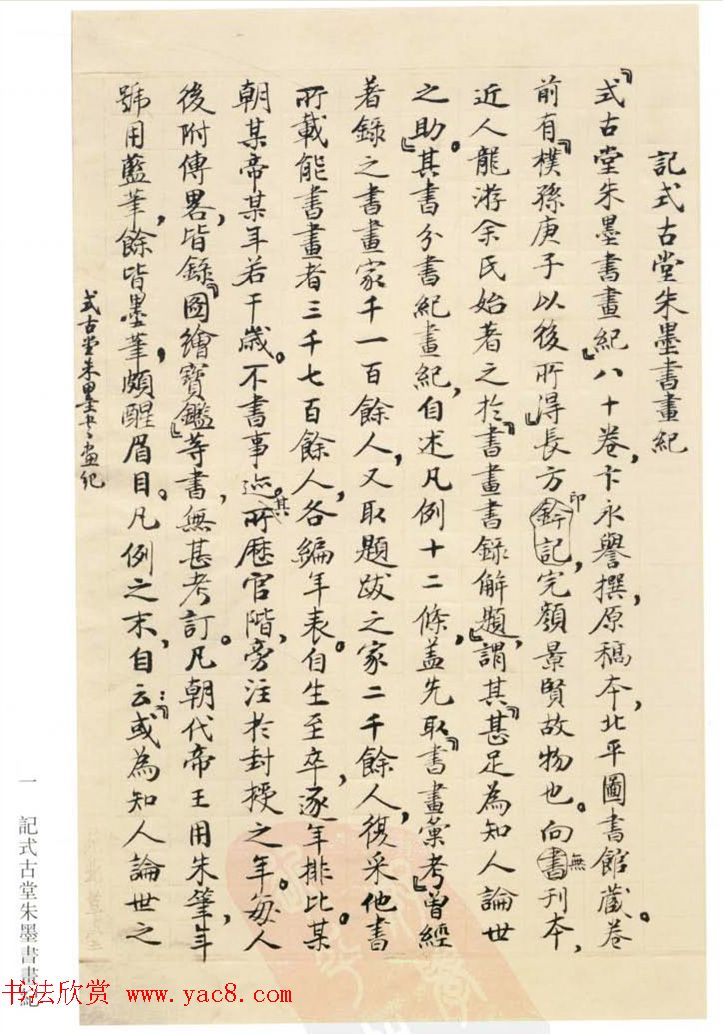 記式古堂朱墨書畫紀
『式古堂朱墨書畫紀』八十卷，卞永譽撰，原稿本，北平圖書館藏。卷
前有『樸孫庚子以後所得』長方鈐記印，完顏景賢故物也。向書無刊本，
近人龍游余氏始著之於『書畫書錄解題』，謂其『甚足為知人論世
之助。』其書分書紀畫紀，自述凡例十二條，蓋先取『書畫彙考』曾經
著錄之書畫家千一百餘人，又取題跋之家二千餘人，復采他書
所載能書畫者三千七百餘人，各編年表。自生至卒，逐年排比。某
朝某帝某年若干歲。不書事迹。其所歷官階，旁注於封授之年。每人
後附傳畧，皆錄『圖繪寶鑑』等書，無甚考訂。凡朝代帝王用朱筆，年
號用藍筆，餘皆墨筆，頗醒眉目。凡例之末，自云：『或為知人論世之
式古堂朱墨書畫紀
一 記式古堂朱墨書畫紀
书法欣赏 www.yac8.com